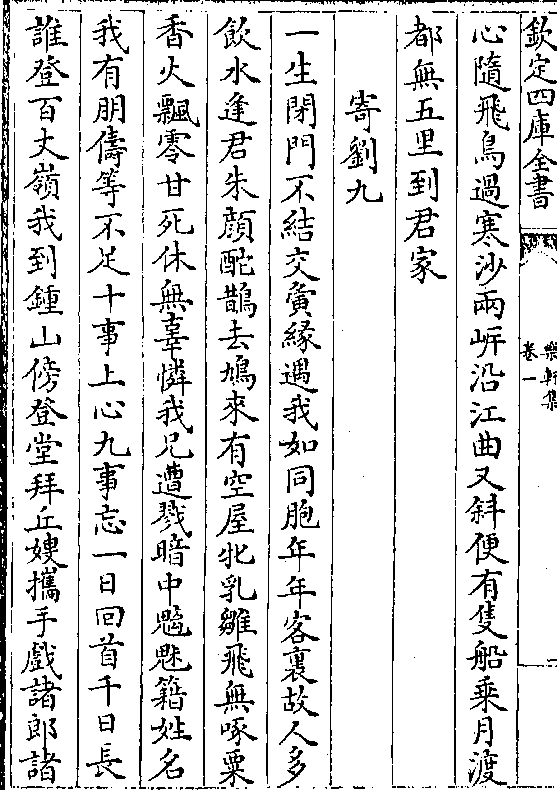 欽定四庫全書
樂軒集
卷一
心隨飛鳥過寒沙兩㟁沿江曲又斜便有隻船乗月渡
都無五里到君家
寄劉九
一生閉門不結交夤緣遇我如同胞年年客裏故人多
飲水逢君朱顔酡鵲去鳩來有空屋牝乳雛飛無啄粟
香火飄零甘死休無辜憐我兄遭戮暗中魑魅籍姓名
我有朋儔等不足十事上心九事忘一日回首千日長
誰登百丈嶺我到鍾山傍登堂拜丘嫂攜手戲諸郎諸